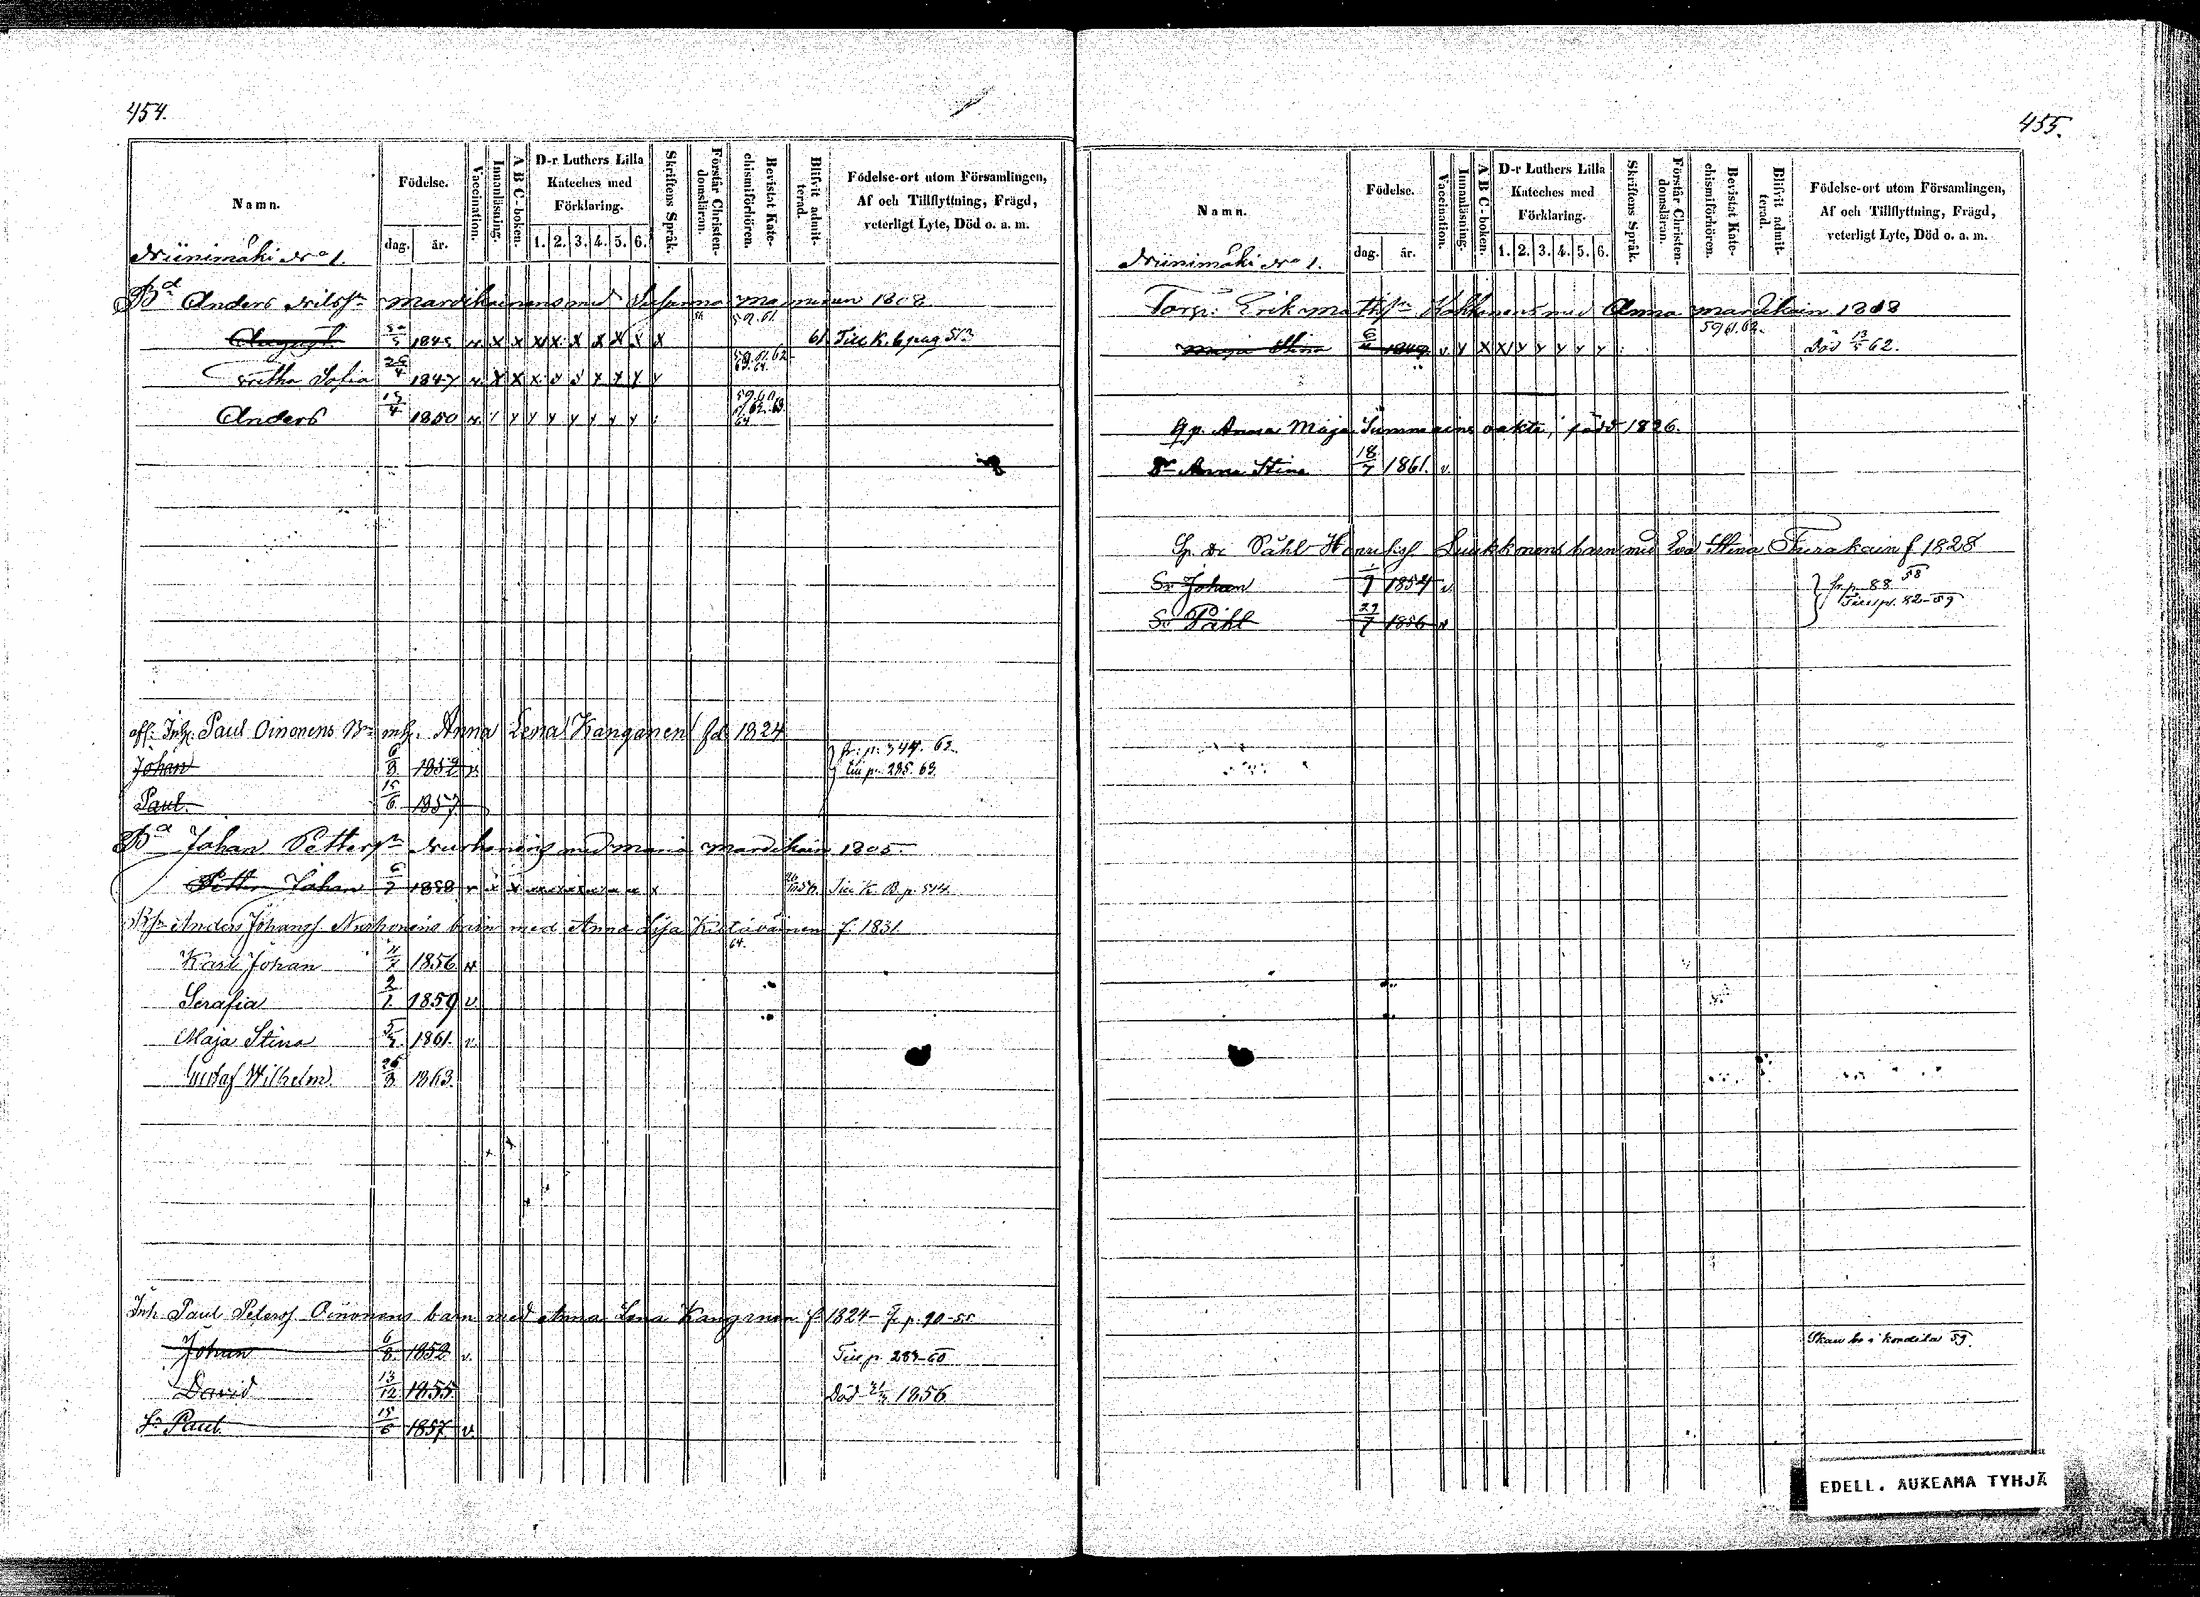 454.
Namn.
Födelse.
dag.
år.
Vaccination.
Innanläsning.
A B C-boken.
D-r Luthers Lilla
Kateches med
Förklaring.
1. 2. 3. 4. 5. 6.
Skriftens Språk.
Förstår Christen-
domsläran.
Bevistat Kate-
chismiförhören.
Blifvit admit-
terad.
Födelse-ort utom Församlingen,
Af och Tillflyttning, Frägd,
veterligt Lyte, Död o. a. m.
Niinimäki No 1.
Bd Anders Nilss:n Mardikainens med Susanna 1808
August 1845 v. x x x x x x x x x 61 Till K. B pag 513
Sofia 1847 v. x x x
Anders 1850 v.
Inh. Paul Oinonens Bn m. h. Anna Lena Kanganen fd 1824
Johan 6/8 1852 v. fr: p: 344. 62.
till p. 285. 63.
Paul 15/6 1857
Bd Johan Petters:n Nurhonens med Maria Mardikain 1805.
Petter Johan 6/7 1838 v x x Till K. B. p. 514.
Anders Johans. Nurhonens barn med Anna Lisa f. 1831.
64.
Karl Johan 11/7 1856 v
Serafia 2/1 1859 v.
Maja Stina 5/7 1861. v.
Gustaf Wilhelm 26/8 1863.
Inh Paul Peterss. Oinonens barn med Anna Lena Kanganen f. 1824 - fr p. 90-55
Johan 6/8 1852 v. Till p. 283-60
David 13/12 1855 Död 1856
Sn Paul 15/6 1857. v.
455.
Namn.
Födelse.
dag.
år.
Vaccination.
Innanläsning.
A B C-boken.
D-r Luthers Lilla
Kateches med
Förklaring.
1. 2. 3. 4. 5. 6.
Skriftens Språk.
Förstår Christen-
domsläran.
Bevistat Kate-
chismiförhören.
Blifvit admit-
terad.
Födelse-ort utom Församlingen,
Af och Tillflyttning, Frägd,
veterligt Lyte, Död o. a. m.
Niinimäki No 1.
Torp. Erik Mathss:n Kokkonens med Anna Mardikain 1808
Maja Stina 1849 v Död 13/5 62.
Anna Maja oäkta, född 1826.
Dr Anna Stina 18/7 1861. v.
Påhl Henrikss Luukkonens barn med Eva Stina f 1828
Sn Johan 1/7 1854 v. fr. p. 88 58
Sn Påhl 29/7 1856 v Till p. 82-59
Skall bo i 59.
EDELL. AUKEAMA TYHJÄ